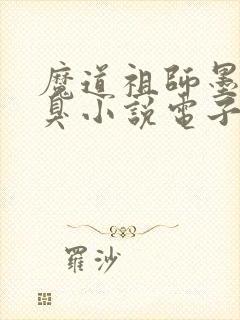 魔道祖師墨
臭小說電子
羅沙